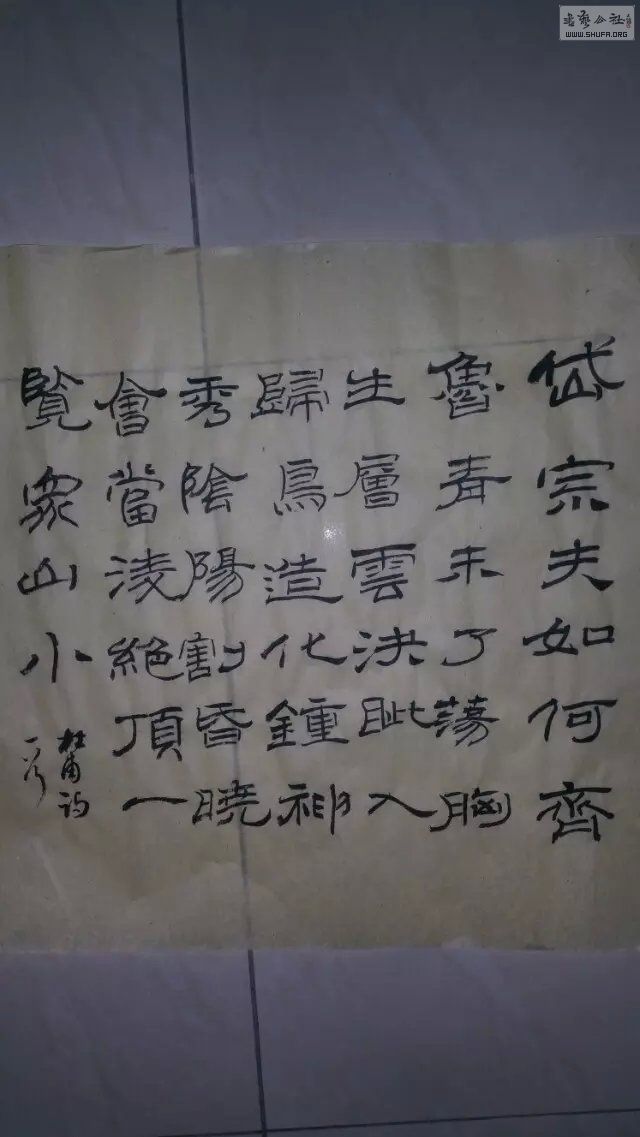 岱宗夫如何齊
魯青未了蕩胸
生層雲決眦入
歸鳥造化鍾神
秀陰陽割昏曉
會當淩絕頂一
覽衆山小
杜甫詩
書藝公社
WWW.SHUFA.ORG